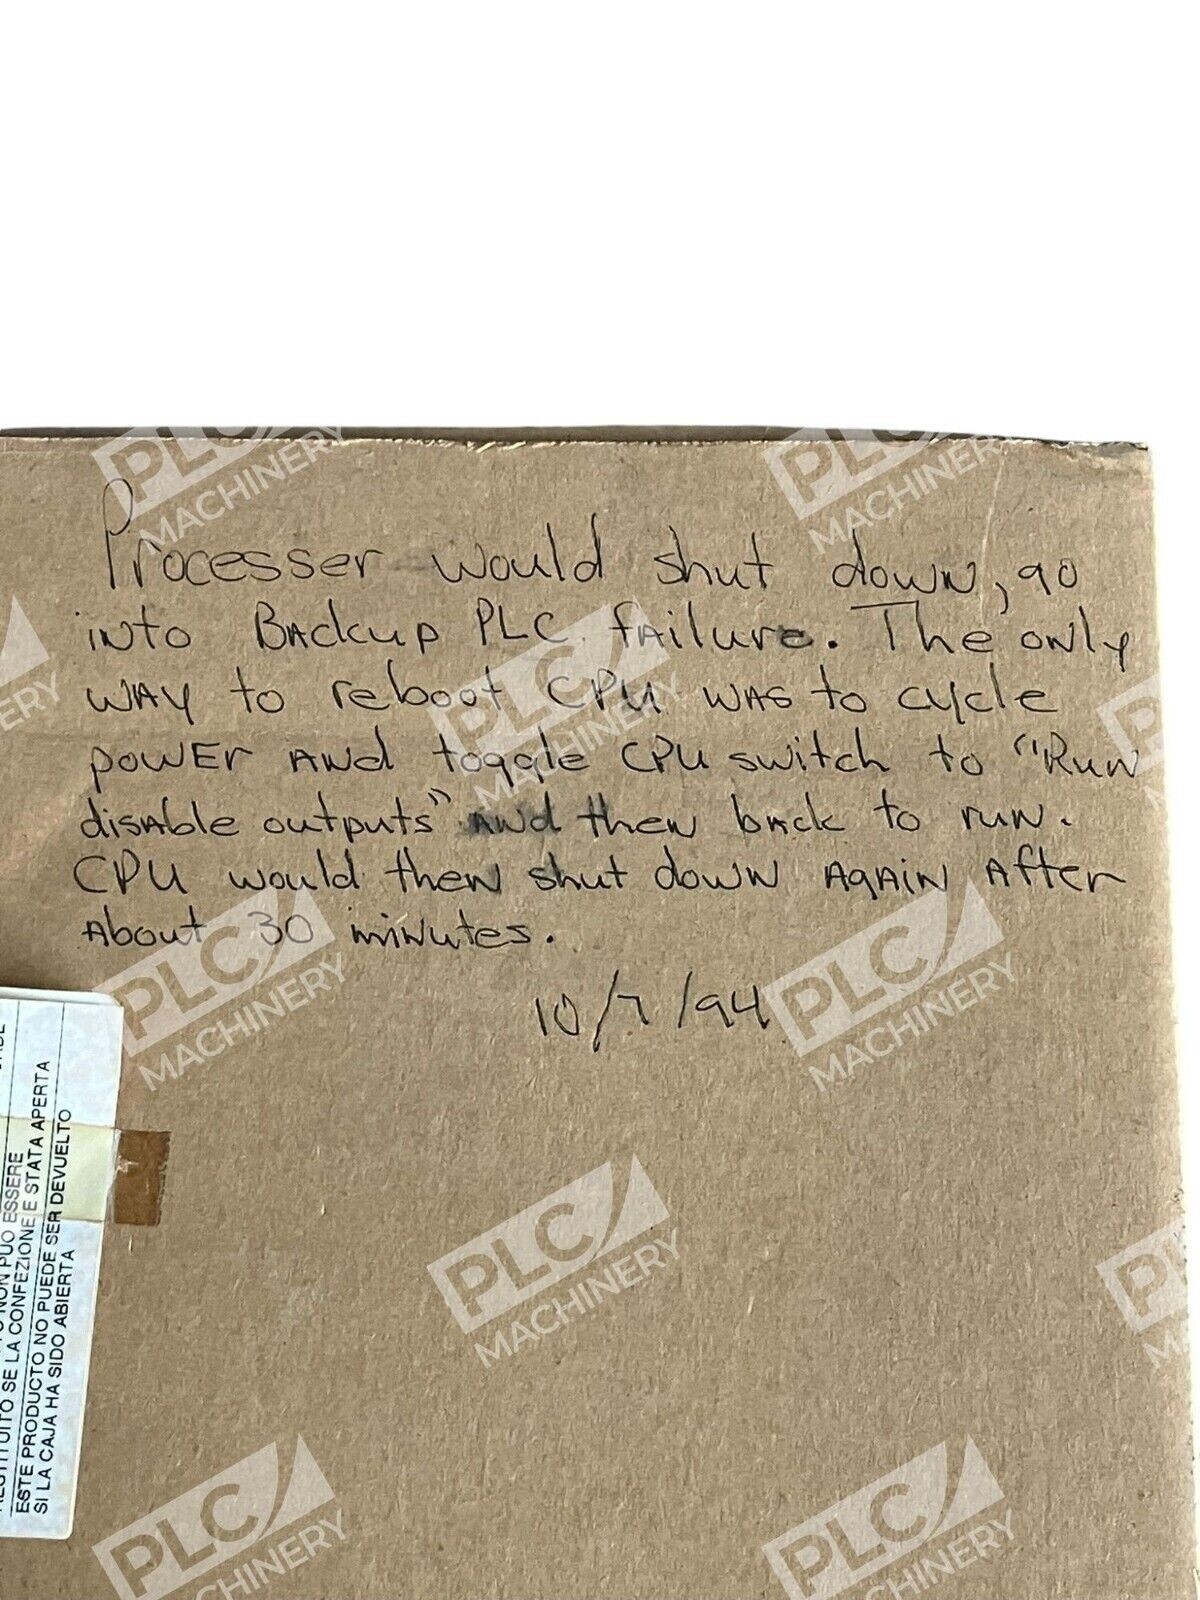 Processer would shut down, go
into Backup PLC failure. The only
way to reboot CPU was to cycle
power and toggle CPU switch to "Run
disable outputs" and then back to run.
CPU would then shut down again after
about 30 minutes.
10/7/94
NON PUO ESSERE
RESTITUITO SE LA CONFEZIONE E STATA APERTA
ESTE PRODUCTO NO PUEDE SER DEVUELTO
SI LA CAJA HA SIDO ABIERTA
PLC MACHINERY
PLC MACHINERY
PLC MACHINERY
PLC MACHINERY
PLC MACHINERY
PLC MACHINERY
PLC MACHINERY
PLC MACHINERY